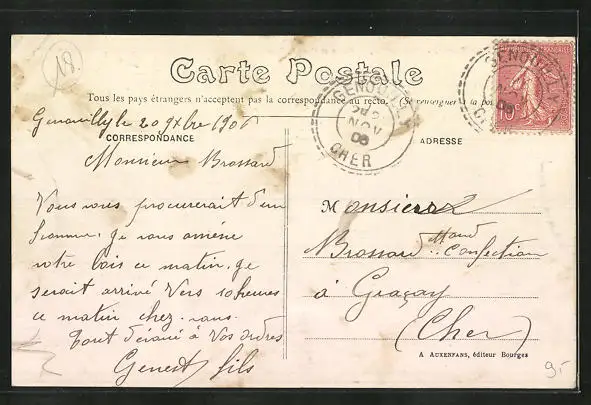 18
Carte Postale
Tous les pays étrangers n'acceptent pas la correspondance au recto. (Se renseigner à la poste
Genouilly le 20 9bre 1906
CORRESPONDANCE
Monsieur Brossard
Vous vous procurerait d'un
homme. Je vous amène
votre bois ce matin. ge
serait arrivé Vers 10 heures
ce matin chez. vous.
Tout dévoué à Vos ordres
Genest fils
GENOUILLY
NOV
06
CHER
GENOUILLY
06
10
ADRESSE
Monsieur
Brossard Mand Confection
à Graçay
(Cher)
A AUXENFANS, éditeur Bourges
9.-